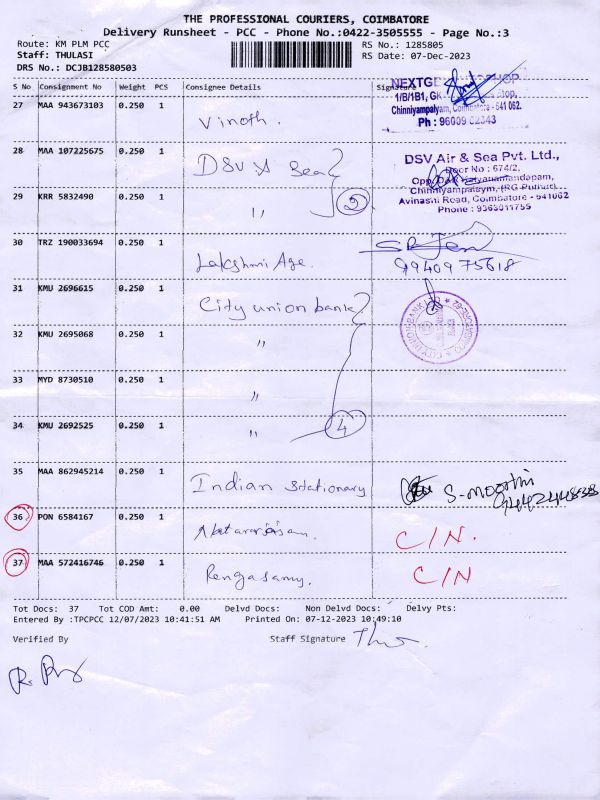 THE PROFESSIONAL COURIERS, COIMBATORE
Delivery Runsheet - PCC - Phone No.:0422-3505555 - Page No.:3
Route: KM PLM PCC RS No.: 1285805
Staff: THULASI RS Date: 07-Dec-2023
DRS No.: DCJB128580503
S No Consignment No Weight PCS Consignee Details Signature
27 MAA 943673103 0.250 1 Vinoth.
1/B/1B1, GK
Chinniyampalyam, Coimbatore - 641 062.
Ph :
28 MAA 107225675 0.250 1 DSV A Sea
DSV Air & Sea Pvt. Ltd.,
Door No : 674/2,
29 KRR 5832490 0.250 1 " 2
Avinashi Road, Coimbatore - 641062
Phone : 9363011755
30 TRZ 190033694 0.250 1 Lakshmi Age.
9940975618
31 KMU 2696615 0.250 1 City union bank
CITY UNION BANK LTD
32 KMU 2695068 0.250 1 "
33 MYD 8730510 0.250 1 "
34 KMU 2692525 0.250 1 " 4
35 MAA 862945214 0.250 1 Indian Stationary S-Moorthi
36 PON 6584167 0.250 1 C/N.
37 MAA 572416746 0.250 1 Rengasamy. C/N
Tot Docs: 37 Tot COD Amt: 0.00 Delvd Docs: Non Delvd Docs: Delvy Pts:
Entered By :TPCPCC 12/07/2023 10:41:51 AM Printed On: 07-12-2023 10:49:10
Verified By Staff Signature